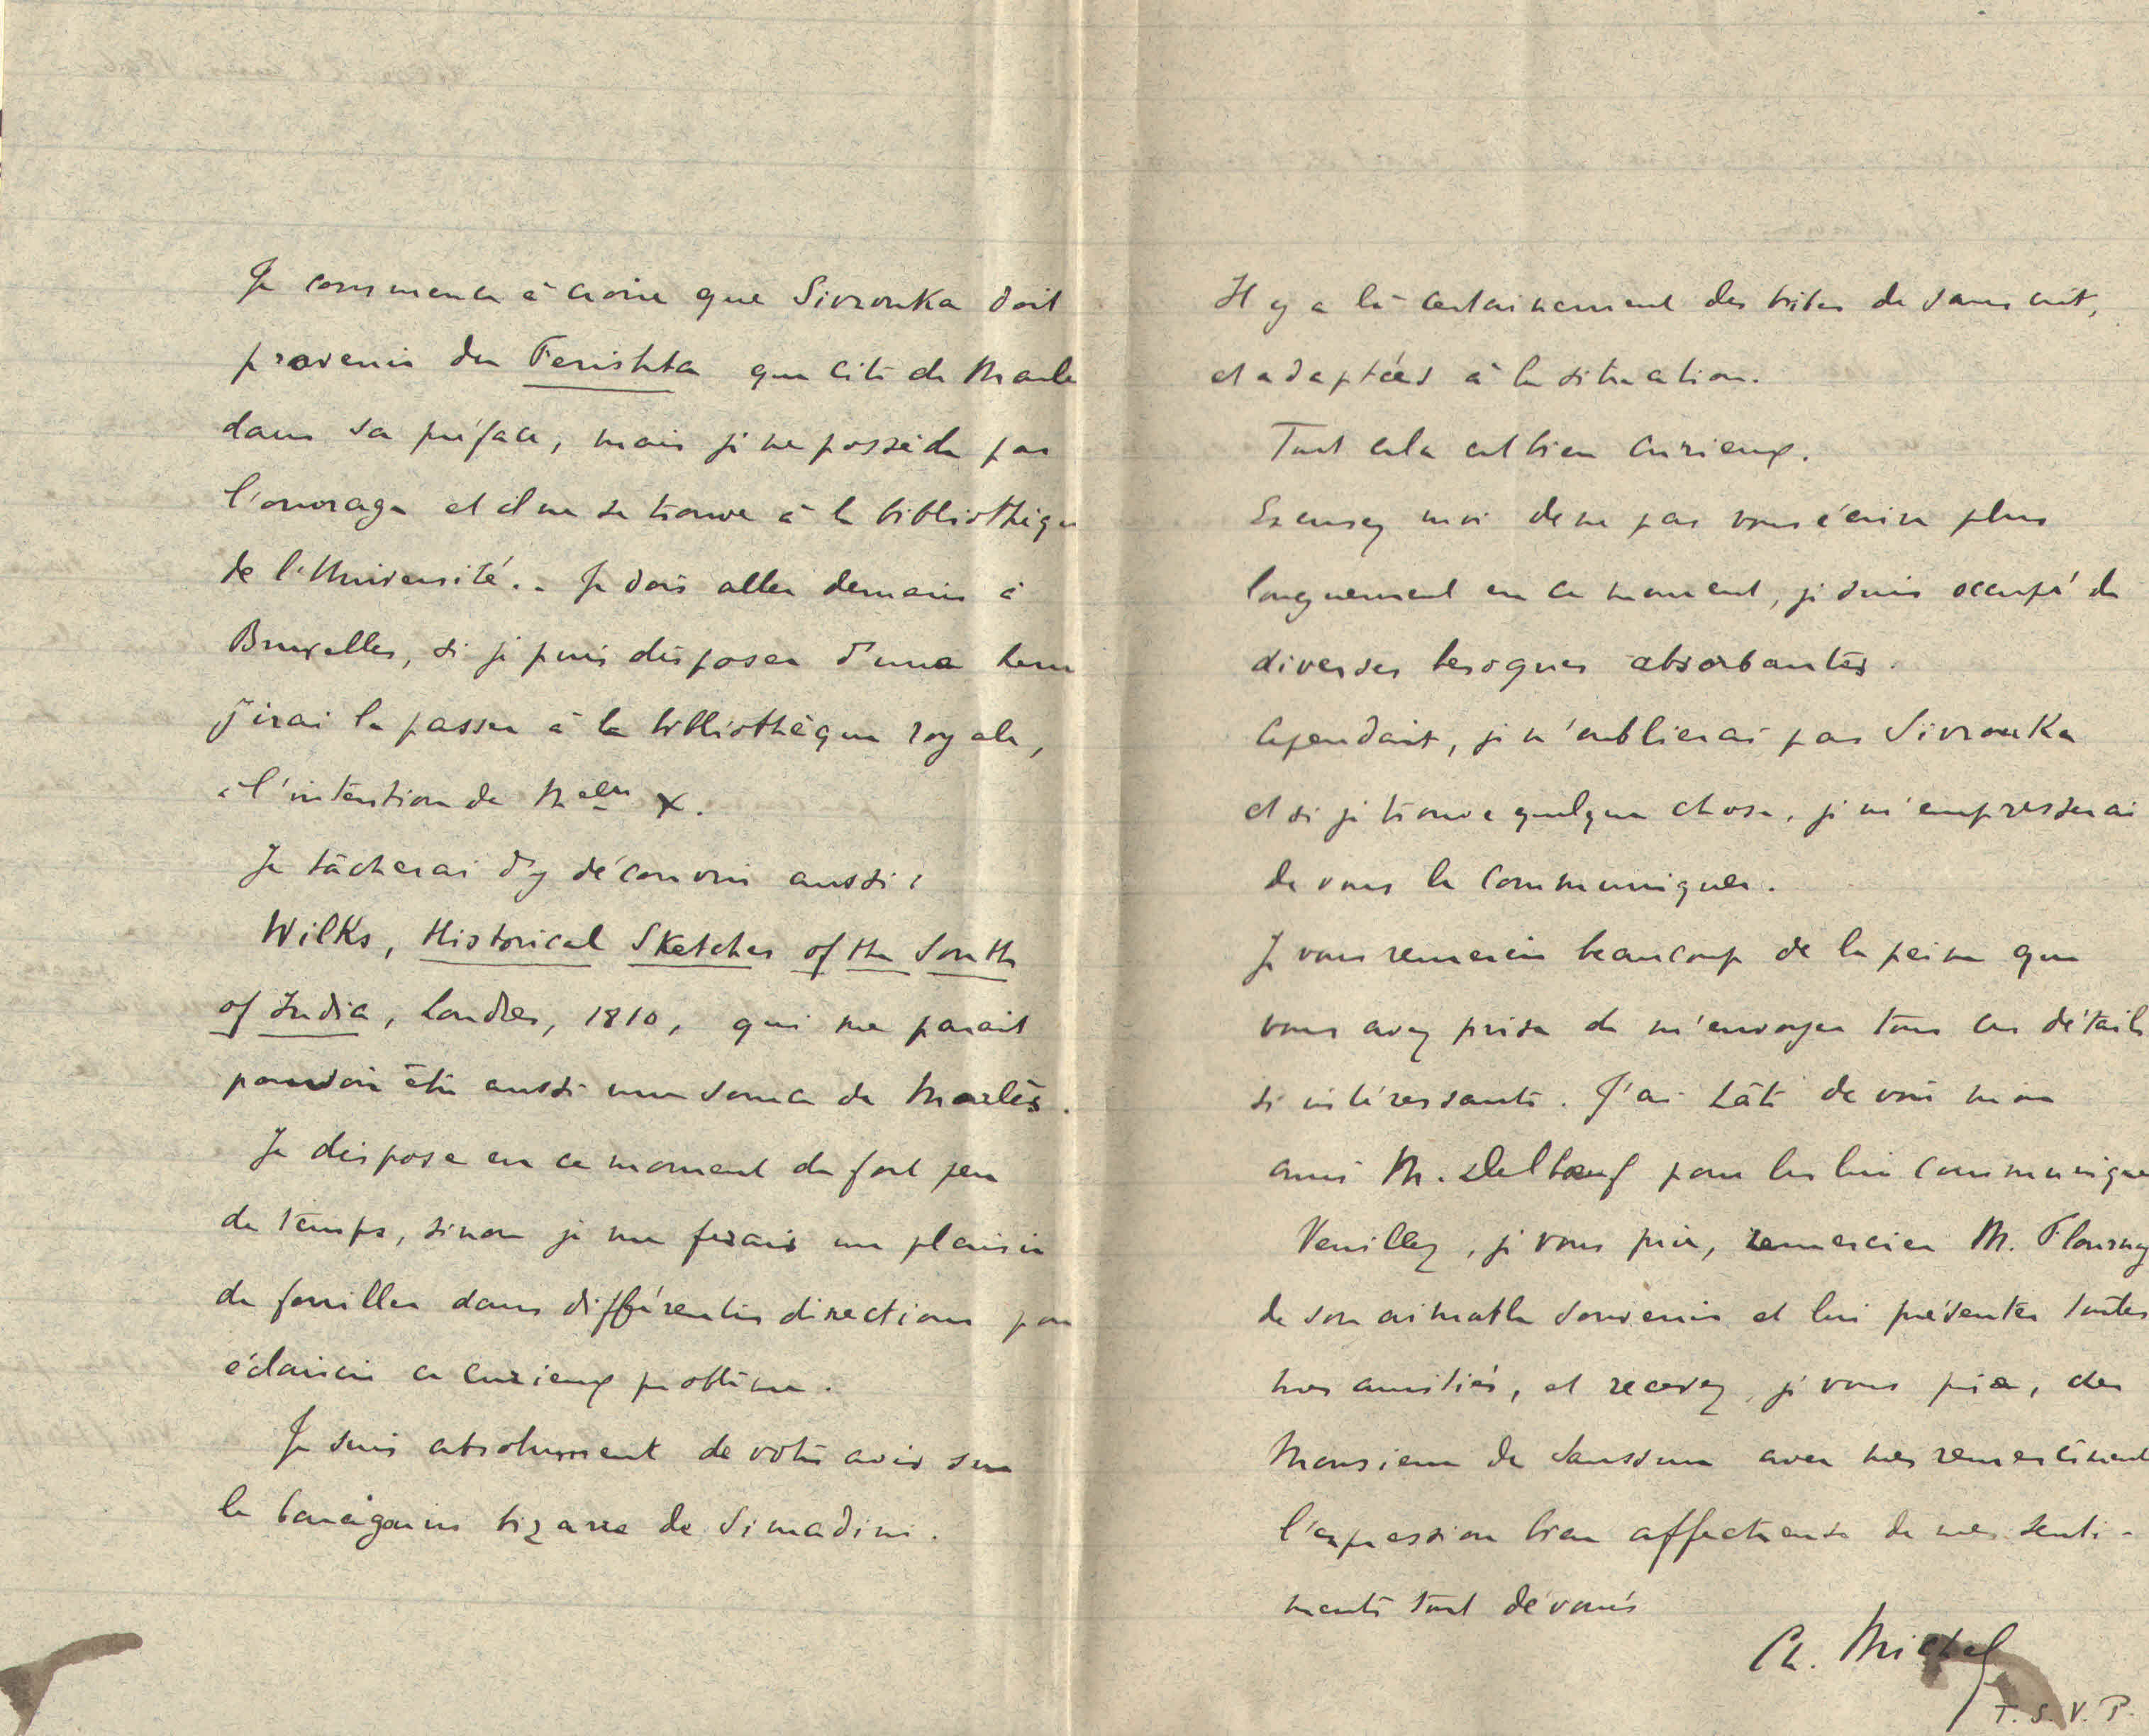 Je commence à croire que Sivrouka doit
provenir du Ferishta que cite de Marlè
dans sa préface, mais je ne possède pas
l'ouvrage et il ne se trouve à la bibliothèqu
de l'Université.. Je dois aller demain à
Bruxelles, si je puis disposer d'une heur
j'irai la passer à la bibliothèque royale,
à l'intention de Melle X.
Je tâcherai d'y découvrir aussi :
Wilks, Historical Sketches of the South
of India, Londres, 1810, qui me parait
pouvoir être aussi une source de Marlès.
Je dispose en ce moment de fort peu
de temps, sinon je me ferais un plaisir
de fouiller dans différentes directions pou
éclaircir ce curieux problème.
Je suis absolument de votre avis sur
le baragouin bizarre de Simadini.
Il y a là certainement des bribes de sanscrit,
et adaptées à la situation.
Tout cela est bien curieux.
Excusez moi de ne pas vous écrire plus
longuement en ce moment, je suis occupé de
diverses besognes absorbantes.
Cependant, je n'oublierai pas Sivrouka
et si je trouve quelque chose, je m'empresserai
de vous le communiquer.
Je vous remercie beaucoup de la peine que
vous avez prise de m'envoyer tous ces détails
si intéressants. J'ai hâte de voir mon
ami M. Delbœuf pour les lui communique
Veuillez, je vous prie, remercier M. Flournoy
de son aimable souvenir et lui présenter toutes
mes amitiés, et recevez, je vous prie, cher
Monsieur de Saussure avec mes remerciments
l'expression bien affectueuse de mes senti-
ments tout dévoués
Ch. Michel
T.S.V.P.